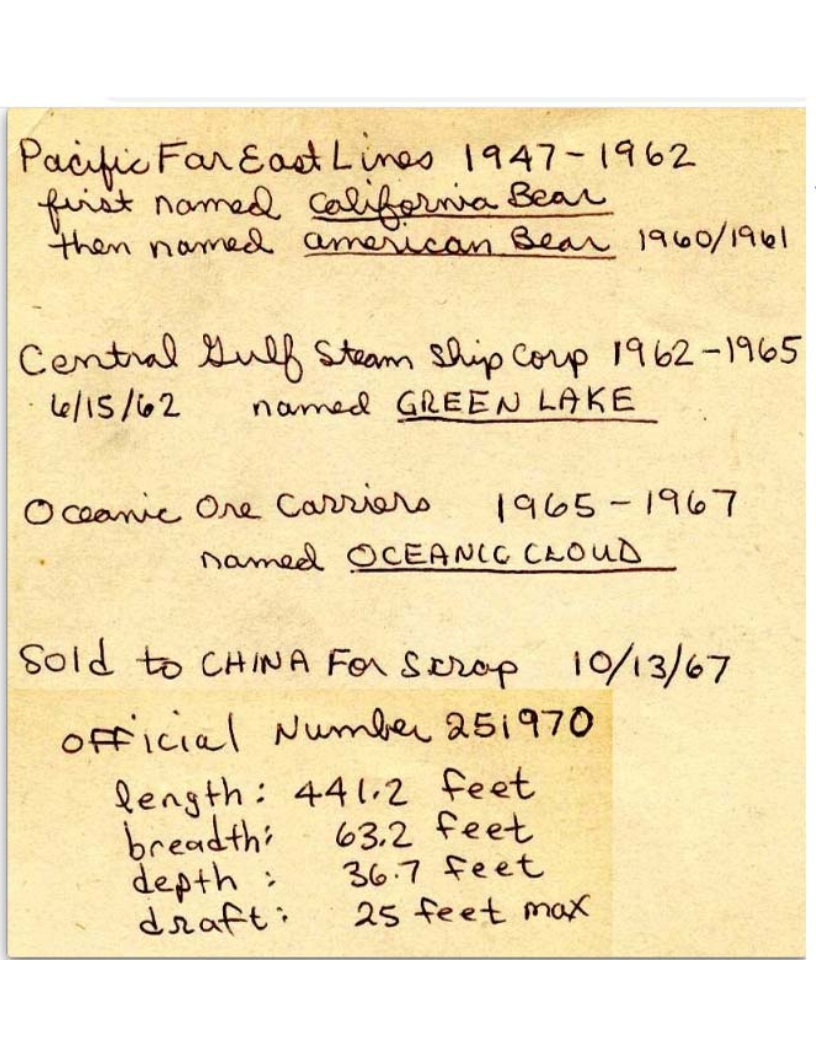 Pacific Far East Lines 1947-1962
first named California Bear
then named American Bear 1960/1961
Central Gulf Steam Ship Corp 1962-1965
6/15/62 named GREEN LAKE
Oceanic Ore Carriers 1965-1967
named OCEANIC CLOUD
Sold to CHINA For Scrap 10/13/67
official Number 251970
length: 441.2 feet
breadth: 63.2 feet
depth : 36.7 feet
draft: 25 feet max